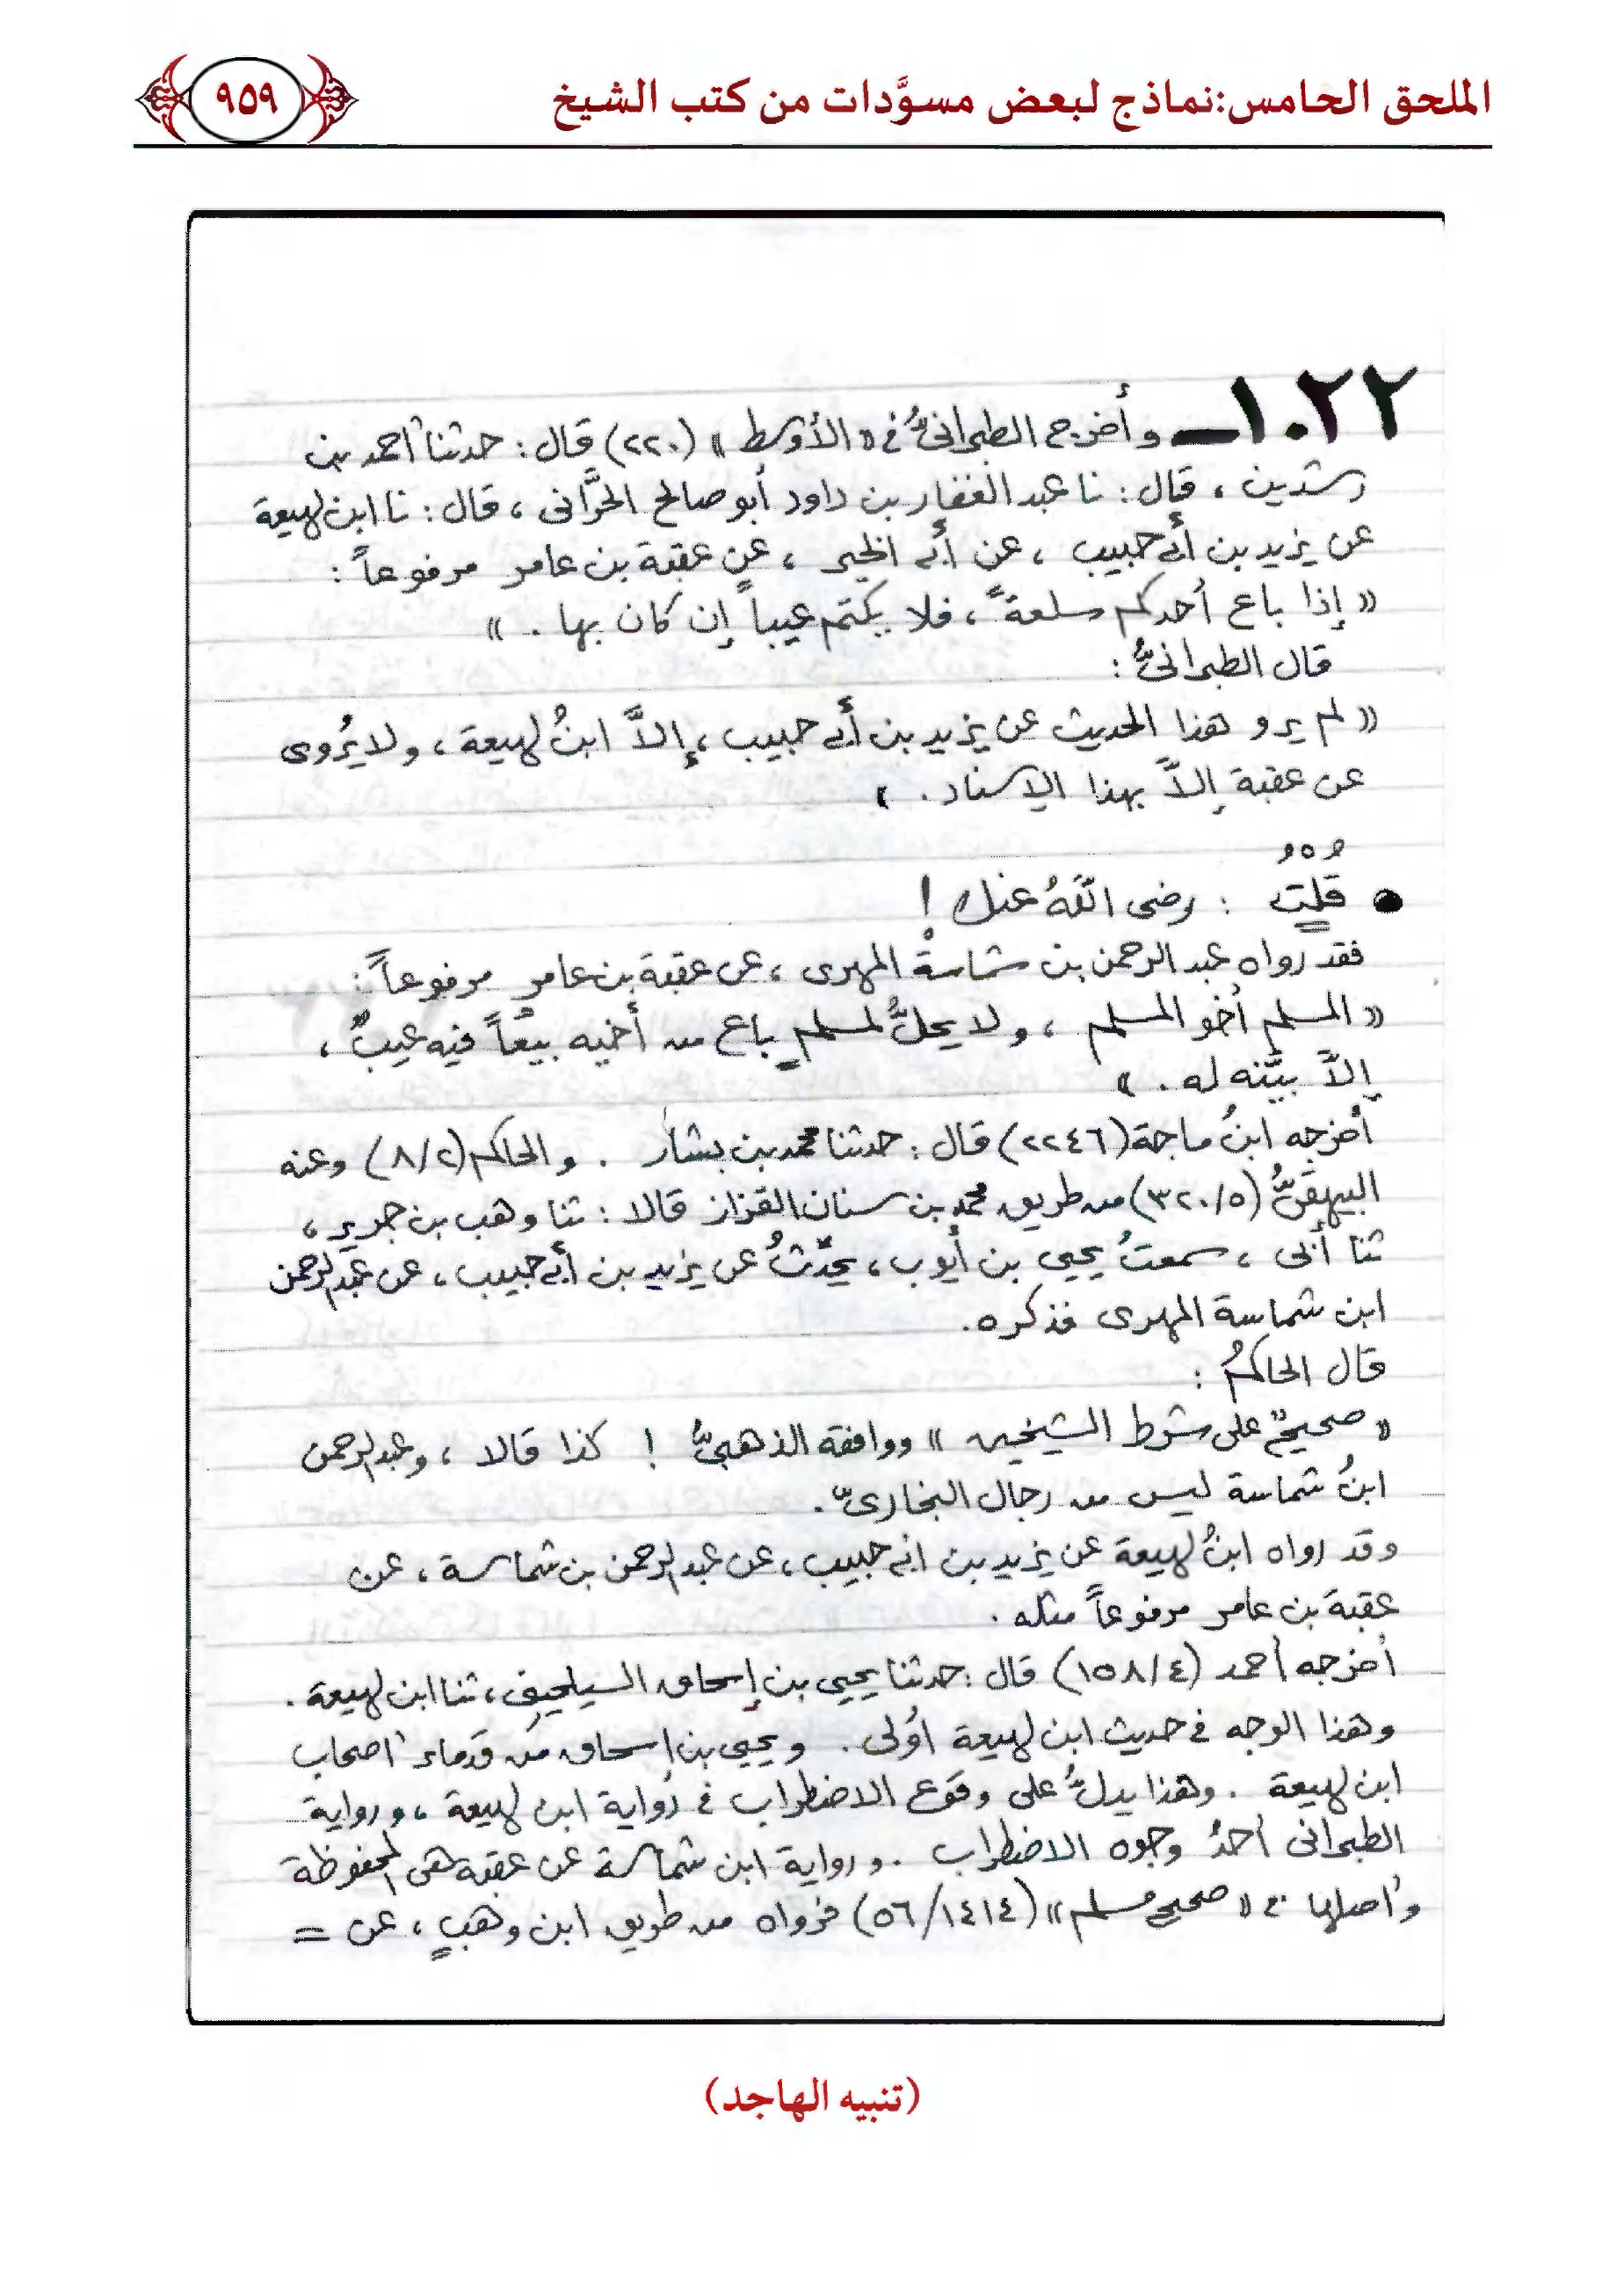 الملحق الخامس: نماذج لبعض مسوَّدات من كتب الشيخ
٩٥٩
١٠٢٢ــ وأخرج الطبرانىُّ فى «الأوسط» (٢٢٠) قال: حدثنا أحمد بن
رشدين ، قال: نا عبد الغفار بن داود أبو صالح الحرَّانى ، قال: نا ابن لهيعة
عن يزيد بن أبى حبيب ، عن أبى الخير ، عن عقبة بن عامر مرفوعاً :
« إذا باع أحدكم سلعةً ، فلا يكتم عيباً إن كان بها . »
قال الطبرانىُّ :
« لم يرو هذا الحديث عن يزيد بن أبى حبيب ، إلاَّ ابنُ لهيعة ، ولا يُروى
عن عقبة إلاَّ بهذا الإسناد . »
• قلتُ : رضى اللَّهُ عنك !
فقد رواه عبد الرحمن بن شماسة المهرى ، عن عقبة بن عامر مرفوعاً :
« المسلم أخو المسلم ، ولا يحلُّ لمسلمٍ باع من أخيه بيعاً فيه عيبٌ ،
إلاَّ بيَّنه له . »
أخرجه ابنُ ماجة (٢٢٤٦) قال : حدثنا محمد بن بشار . والحاكم (٨/٢) وعنه
البيهقىُّ (٣٢٠/٥) من طريق محمد بن سنان القزاز قالا : ثنا وهب بن جرير ،
ثنا أبى ، سمعتُ يحيى بن أيوب ، يحدِّثُ عن يزيد بن أبى حبيب ، عن عبد الرحمن
ابن شماسة المهرى فذكره.
قال الحاكمُ :
« صحيحٌ على شرط الشيخين » ووافقه الذهبىُّ ! كذا قالا ، وعبد الرحمن
ابنُ شماسة ليس من رجال البخارىّ .
وقد رواه ابنُ لهيعة عن يزيد بن ابى حبيب ، عن عبد الرحمن بن شماسة ، عن
عقبة بن عامر مرفوعاً مثله .
أخرجه أحمد (١٥٨/٤) قال : حدثنا يحيى بن إسحاق السيلحينى ، ثنا ابن لهيعة .
وهذا الوجه فى حديث ابن لهيعة أولى . ويحيى بن إسحاق من قدماء أصحاب
ابن لهيعة . وهذا يدلُّ على وقوع الاضطراب فى رواية ابن لهيعة ، ورواية
الطبرانى أحدُ وجوه الاضطراب . ورواية ابن شماسة عن عقبة هى المحفوظة
وأصلها فى « صحيح مسلم » (٥٦/١٤١٤) فرواه من طريق ابن وهبٍ ، عن =
(تنبيه الهاجد)